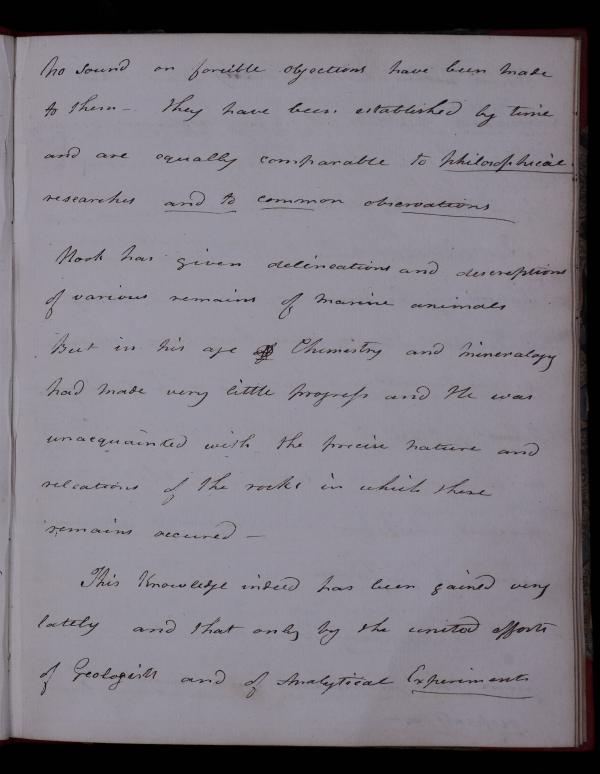 No sound or forcible objections have been made
to them - They have been established by time
and are equally comparable to philosophical
researches and to common observations
Hook has given delineations and descriptions
of various remains of marine animals
But in his age Chemistry and mineralogy
had made very little progress and He was
unacquainted with the precise nature and
relations of the rocks in which these
remains occured —
This Knowledge indeed has been gained very
lately and that only by the united efforts
of Geologists and of Analytical Experiments